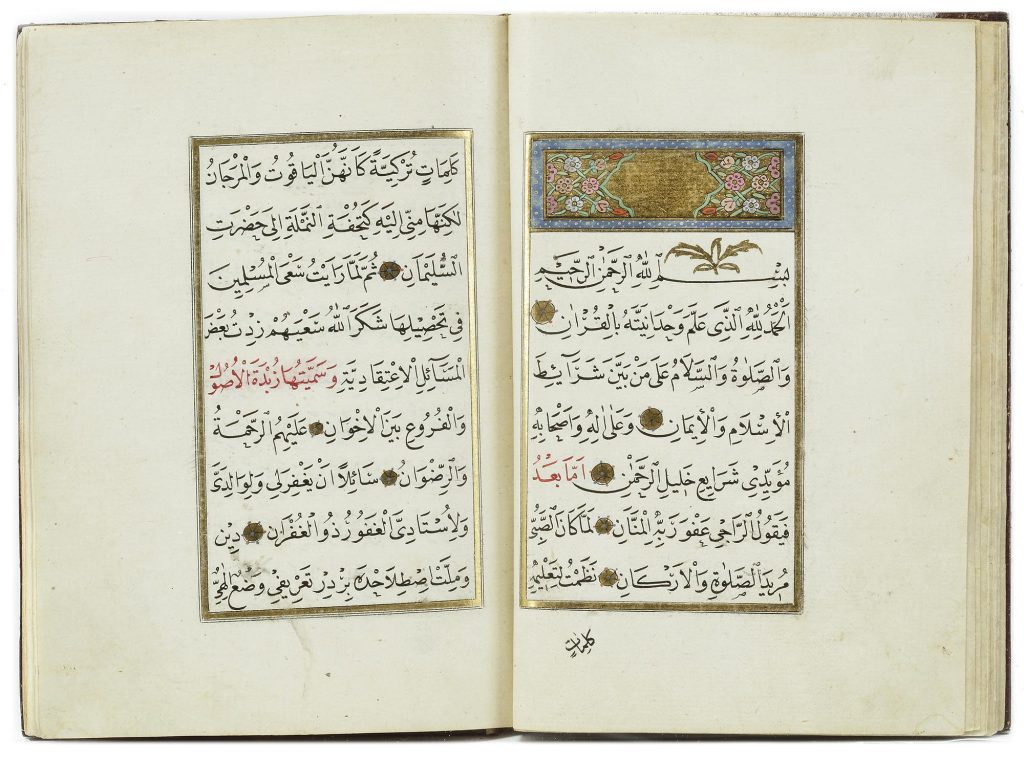 بِسْمِ اللهِ الرَّحْمٰنِ الرَّحِيمِ
اَلْحَمْدُ لِلّٰهِ الَّذِى عَلَّمَ وَحْدَانِيَّتَهُ بِالْقُرْاٰنِ
وَالصَّلٰوةُ وَالسَّلَامُ عَلٰى مَنْ بَيَّنَ شَرَائِطَ
الْاِسْلَامِ وَالْاِيمَانِ وَعَلٰى اٰلِهِ وَاَصْحَابِهِ
مُؤَيِّدِى شَرَايِعِ خَلِيلِ الرَّحْمٰنِ اَمَّا بَعْدُ
فَيَقُولُ الرَّاجِى عَفْوَ رَبِّهِ الْمَنَّانِ لَمَّا كَانَ الصَّبِىُّ
مُرِيدَ الصَّلٰوةِ وَالْاَرْكَانِ نَظَمْتُ لِتَعْلِيمِهِ
كلمات
كَلِمَاتٍ تُرْكِيَّةً كَاَنَّهُنَّ الْيَاقُوتُ وَالْمَرْجَانُ
لٰكِنَّهَا مِنِّى اِلَيْهِ كَتُحْفَةِ النَّمْلَةِ اِلٰى حَضْرَتِ
السُّلَيْمَانِ ثُمَّ لَمَّا رَاَيْتُ سَعْىَ الْمُسْلِمِينَ
فِى تَحْصِيلِهَا شَكَرَ اللهُ سَعْيَهُمْ زِدْتُ بَعْضَ
الْمَسَائِلِ الْاِعْتِقَادِيَّةِ وَسَمَّيْتُهَا زُبْدَةَ الْاُصُولِ
وَالْفُرُوعِ بَيْنَ الْاِخْوَانِ عَلَيْهِمُ الرَّحْمَةُ
وَالرِّضْوَانُ سَائِلًا اَنْ يَغْفِرَلِى وَلِوَالِدَىَّ
وَلِاُسْتَادِىَّ الْغَفُورُ ذُو الْغُفْرَانِ دِينِ
وَمِلَّتْ اِصْطِلَاحْدَه بِرْدِرْ تَعْرِيفِى وَضْعِ اِلٰهِى